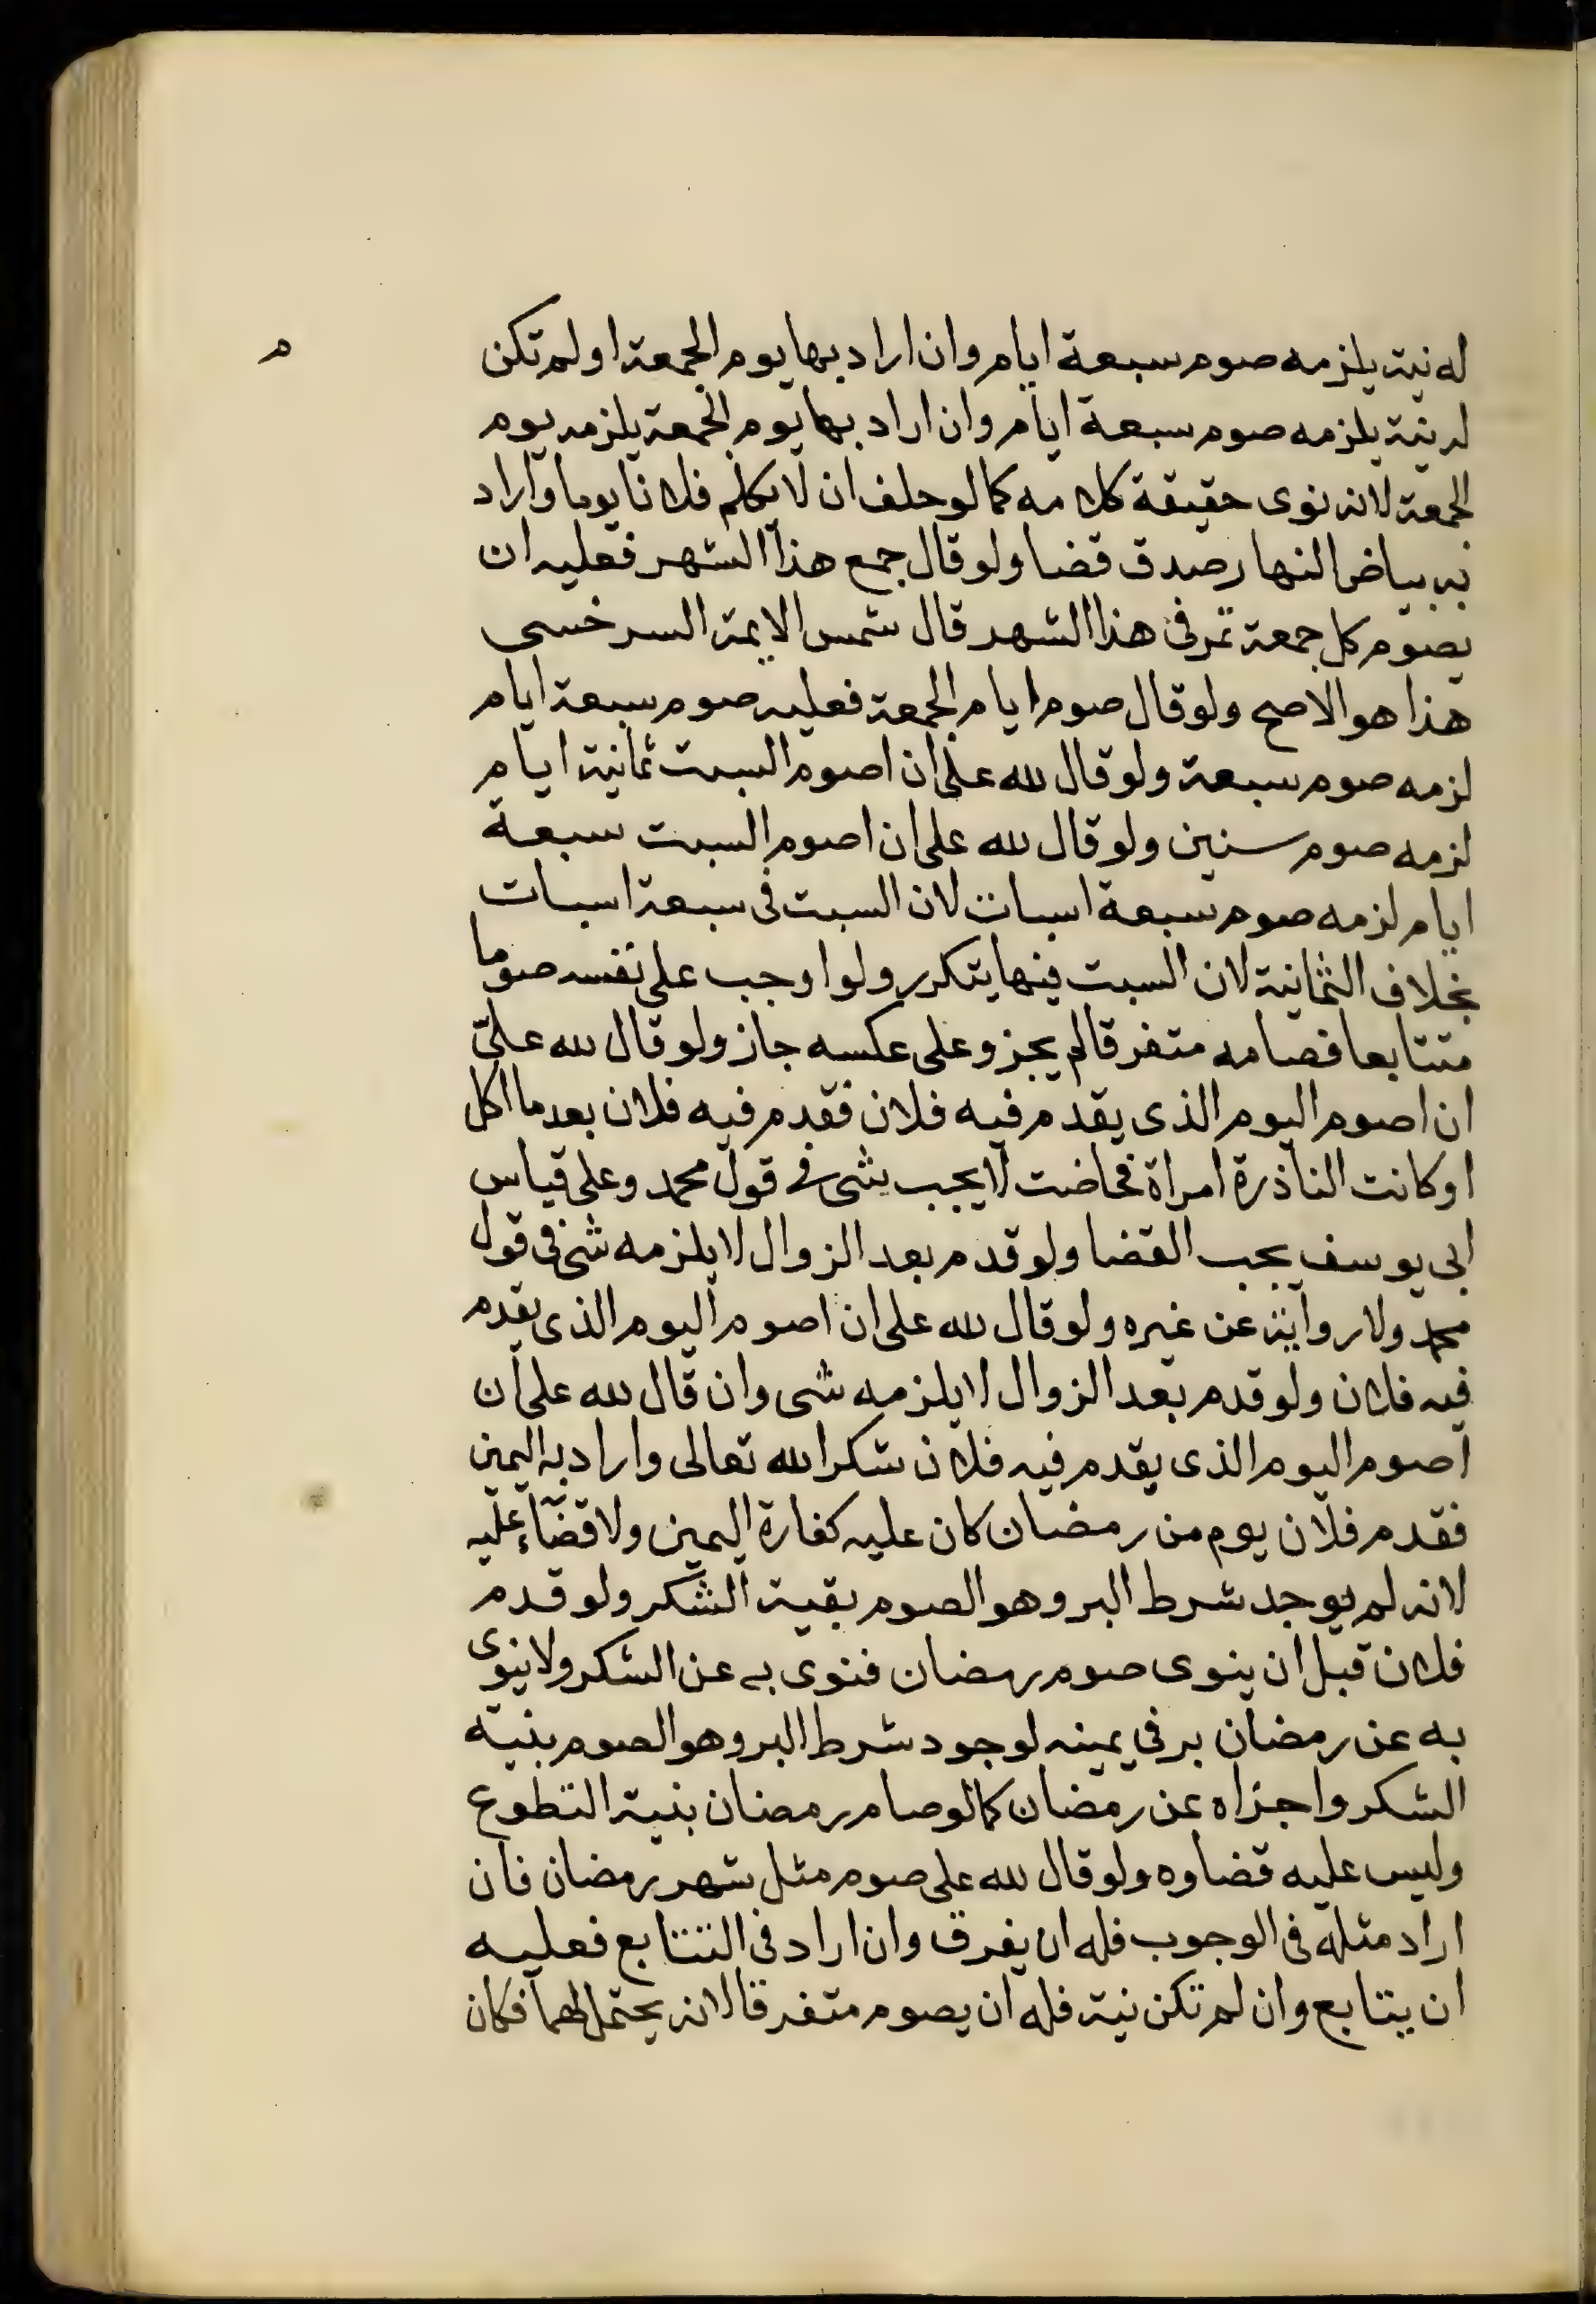 م
له نية يلزمه صوم سبعة ايام وان اراد بها يوم الجمعة اولم تكن
له نية يلزمه صوم سبعة ايام وان اراد بها يوم الجمعة يلزمه يوم
الجمعة لانه نوى حقيقة كلامه كما لو حلف ان لا يكلم فلانا يوما واراد
به بياض النهار صدق قضا ولو قال جمع هذا الشهر فعليه ان
يصوم كل جمعة تمر فى هذا الشهر قال شمس الايمة السرخسى
هذا هو الاصح ولو قال صوم ايام الجمعة فعليه صوم سبعة ايام
لزمه صوم سبعة ولو قال لله على ان اصوم السبت ثمانية ايام
لزمه صوم سنين ولو قال لله على ان اصوم السبت سبعة
ايام لزمه صوم سبعة اسبات لان السبت فى سبعة اسبات
بخلاف الثمانية لان السبت فيها يتكرر ولو اوجب على نفسه صوما
متتابعا فصامه متفرقا لم يجز وعلى عكسه جاز ولو قال لله علىّ
ان اصوم اليوم الذى يقدم فيه فلان فقدم فيه فلان بعد ما اكل
او كانت الناذرة امراة فحاضت لا يجب شى فى قول محمد وعلى قياس
ابى يوسف يجب القضا ولو قدم بعد الزوال لا يلزمه شئ فى قول
محمد ولا رواية عن غيره ولو قال لله على ان اصوم اليوم الذى يقدم
فيه فلان ولو قدم بعد الزوال لا يلزمه شى وان قال لله على ان
اصوم اليوم الذى يقدم فيه فلان شكرا لله تعالى واراد به اليمين
فقدم فلان يوم من رمضان كان عليه كفارة اليمين ولا قضآء عليه
لانه لم يوجد شرط البر وهو الصوم بقية الشكر ولو قدم
فلان قبل ان ينوى صوم رمضان فنوى به عن الشكر ولا ينوى
به عن رمضان بر فى يمينه لوجود شرط البر وهو الصوم بنية
الشكر واجزاه عن رمضان كما لو صام رمضان بنية التطوع
وليس عليه قضاوه ولو قال لله على صوم مثل شهر رمضان فان
اراد مثله فى الوجوب فله ان يفرق وان اراد فى التتابع فعليه
ان يتابع وان لم تكن نية فله ان يصوم متفرقا لانه يحتملهما فكان